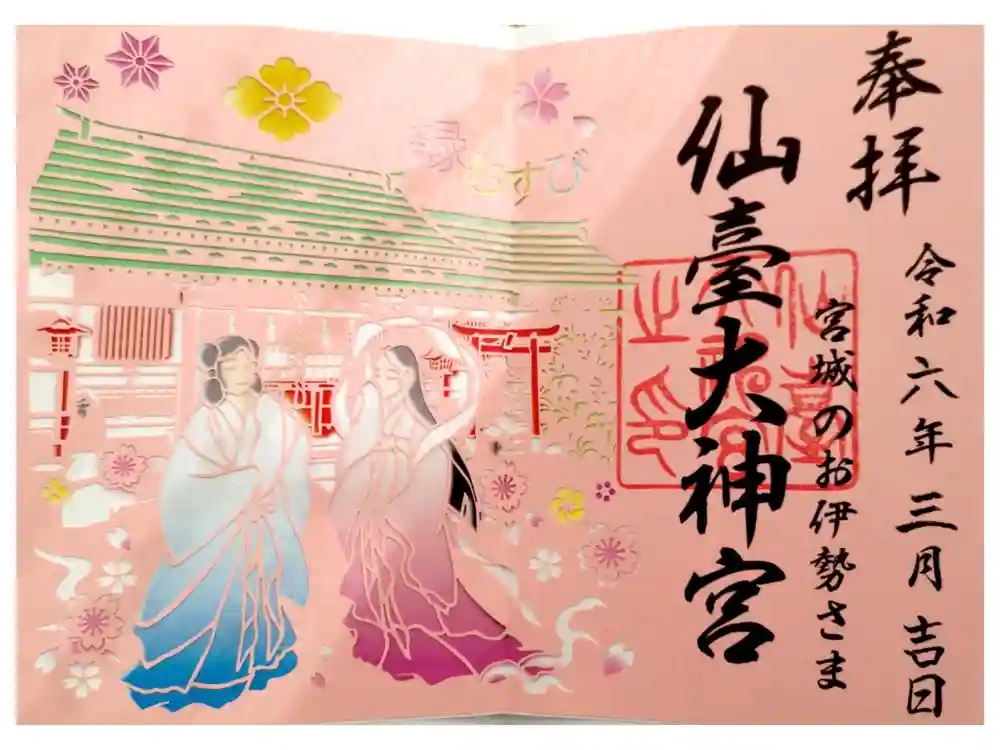 奉拝
令和六年三月吉日
宮城のお伊勢さま
仙臺大神宮
縁むすび